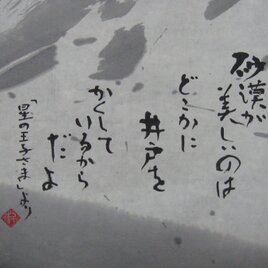 砂漠が
美しいのは
どこかに
井戸を
かくして
いるから
だよ
「星の王子さま」より